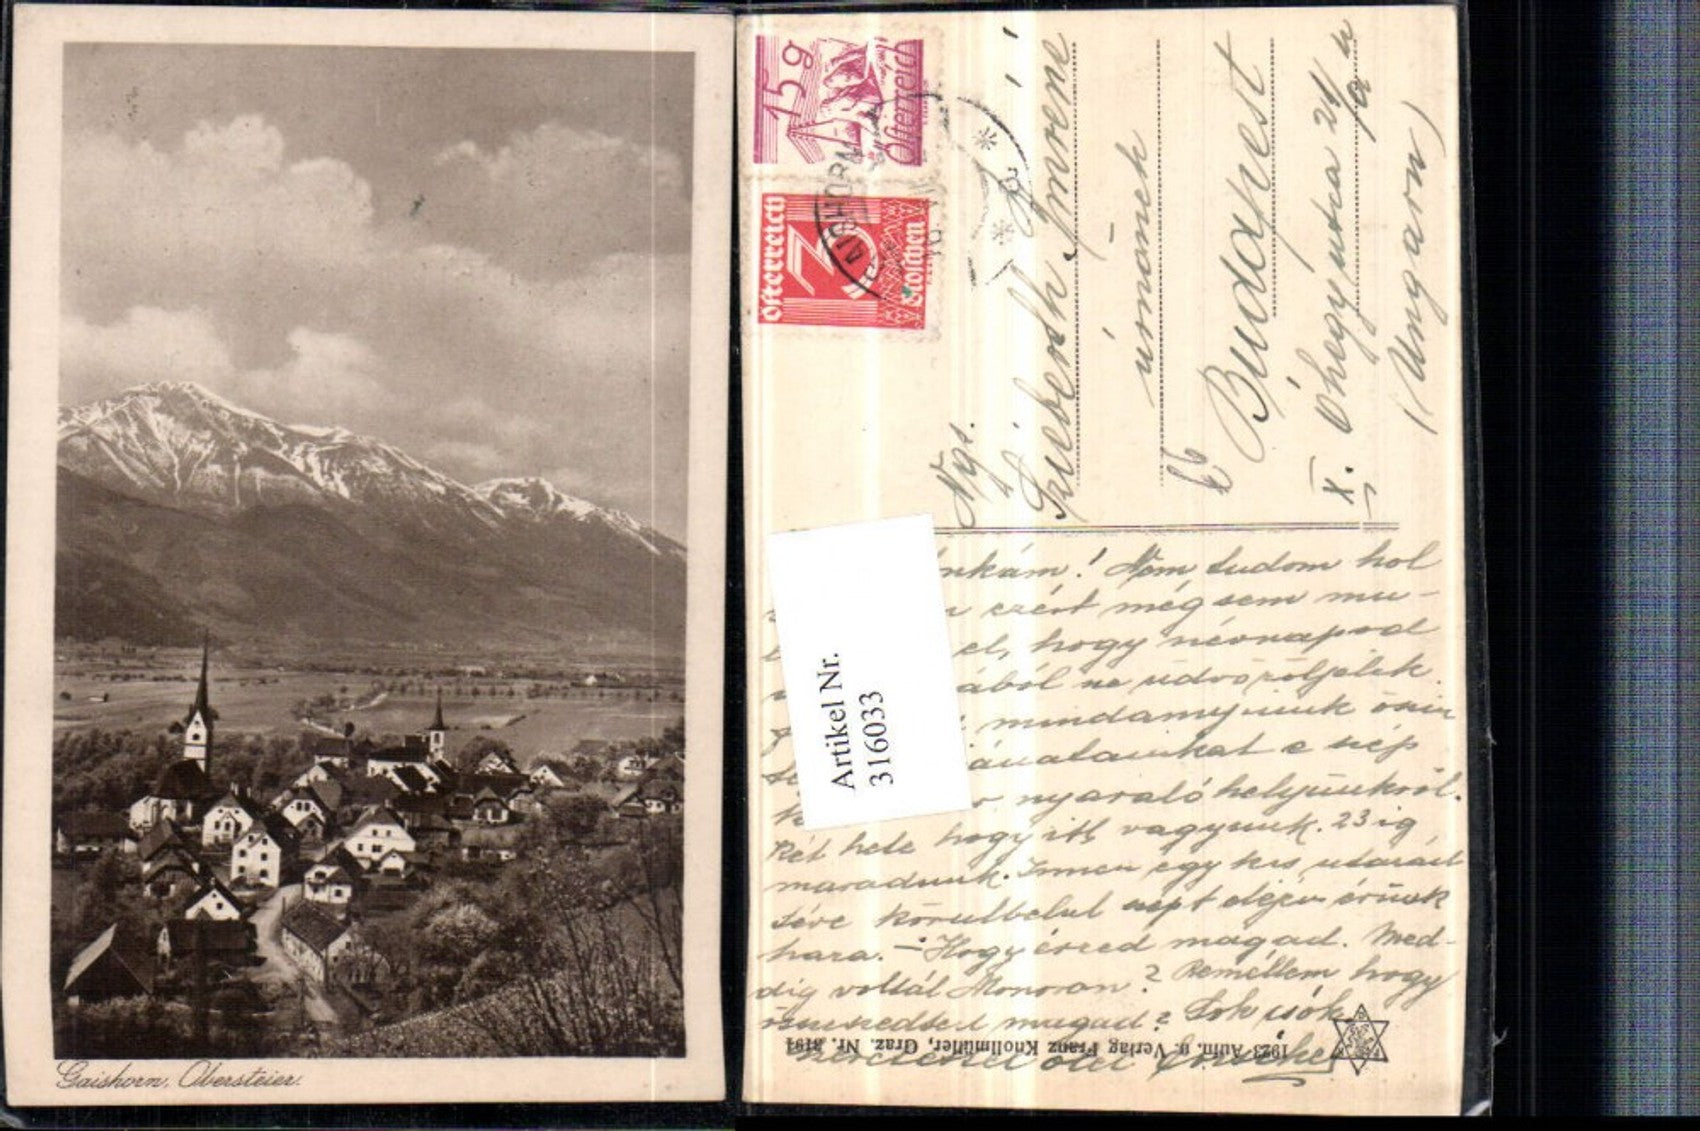 Gaishorn, Obersteier.
15g
Österreich
Österreich
3
Groschen
GAISHORN
Ngs.
Lieberth Imréné
úrnőnek
Budapest
X. Óhegyutca 21/a
(Ungarn)
Artikel Nr.
3166033
nkám! Nem tudom hol
ezért mégsem mu-
el, hogy névnapod
ából ne üdvözöljelek.
mindamyiunk őszin
kívánatainkat e szép
nyaralóhelyünkről.
Két hete hogy itt vagyunk. 23 ig
maradunk. Innen egy kis utazást
téve körülbelül szept elején érünk
haza. – Hogy érzed magad. Med-
dig voltál Monoron? Remélem hogy
összeszedted magad? Sok csók
szeretettel ölel
1923 Aufn. u. Verlag Franz Knollmüller, Graz. Nr. 3194